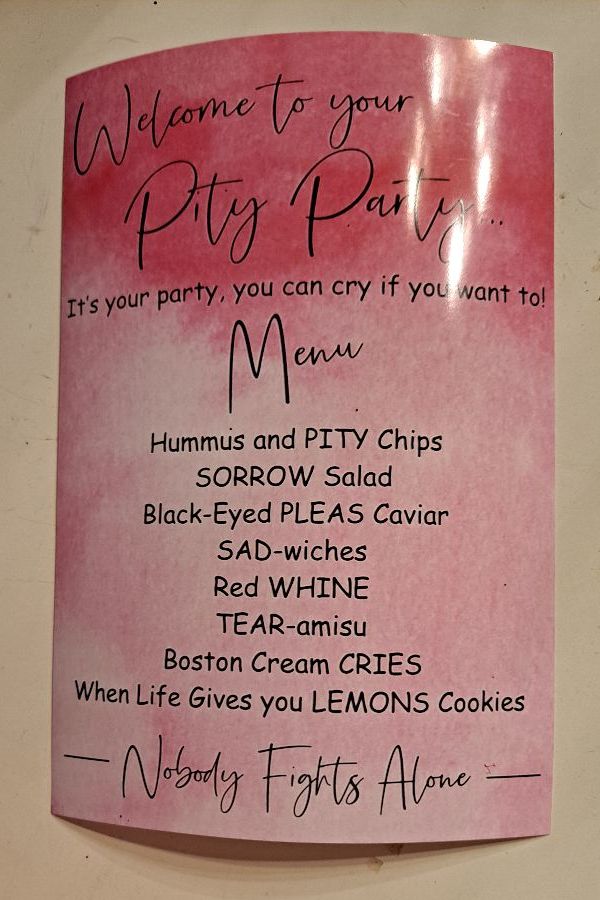 Welcome to your
Pity Party...
It's your party, you can cry if you want to!
Menu
Hummus and PITY Chips
SORROW Salad
Black-Eyed PLEAS Caviar
SAD-wiches
Red WHINE
TEAR-amisu
Boston Cream CRIES
When Life Gives you LEMONS Cookies
— Nobody Fights Alone —